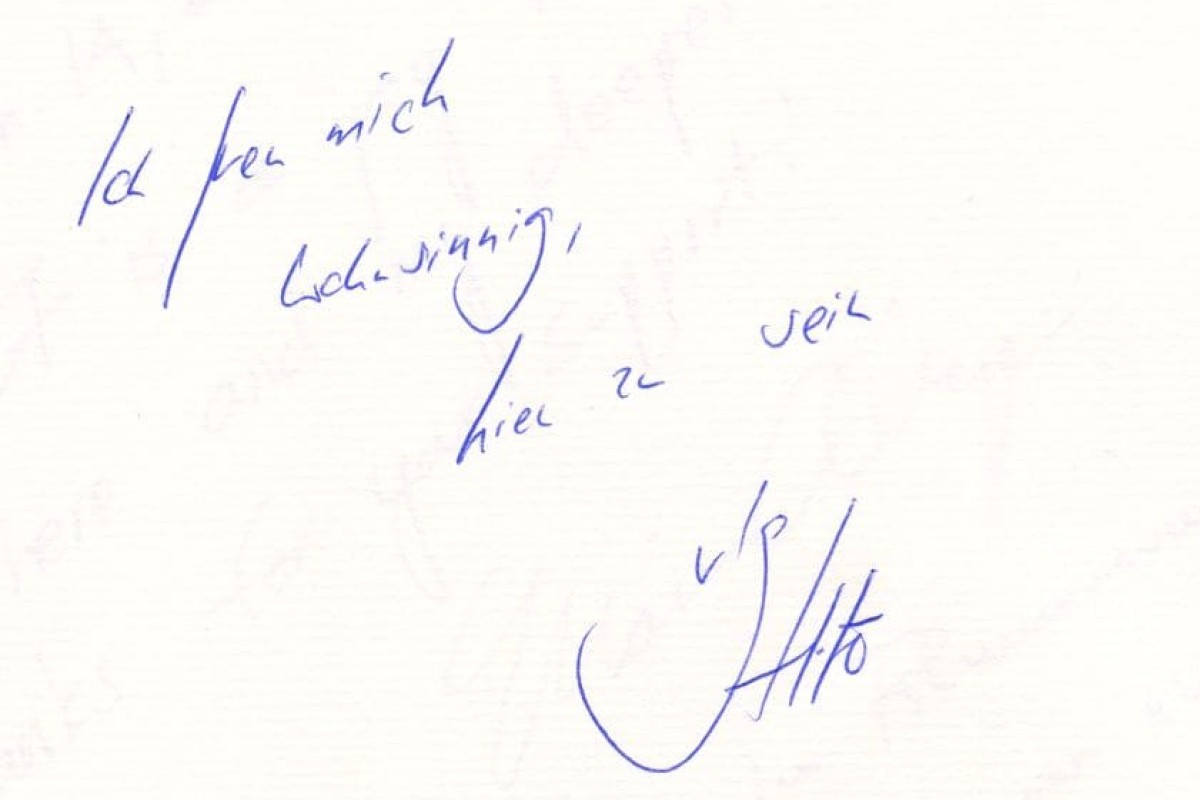 Ich freu mich
wahnsinnig,
hier zu sein
vlg